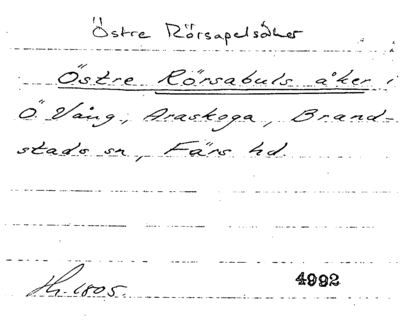 Östre Rörsapelsåker
Östre Rörsabuls åker i
Ö. Vång., Araskoga, Brand-
stads sn, Färs hd.
Hy. 1805.
4992